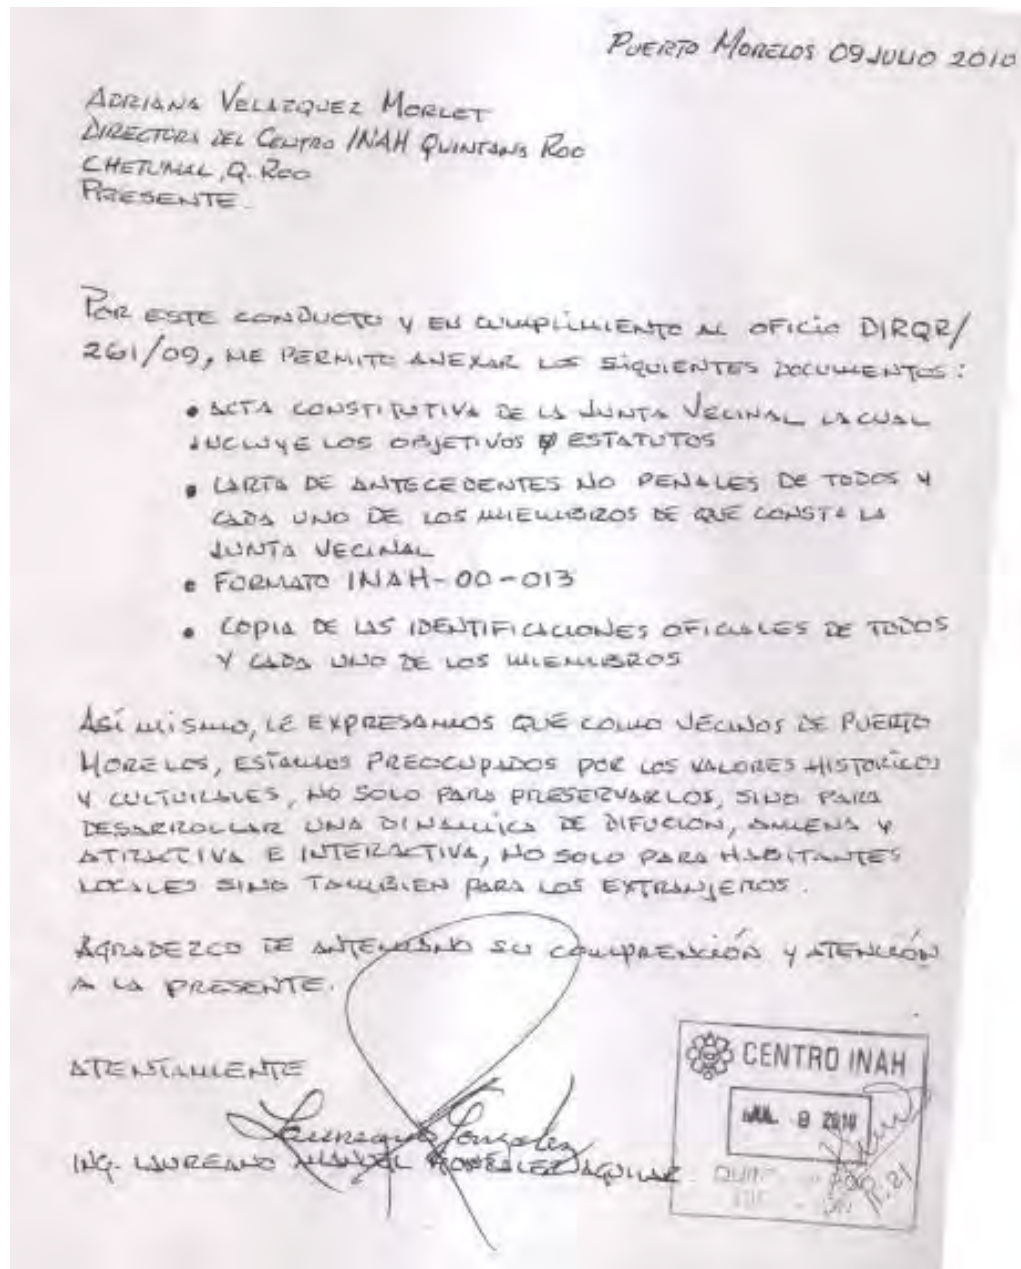 PUERTO MORELOS 09 JULIO 2010
ADRIANA VELAZQUEZ MORLET
DIRECTORA DEL CENTRO INAH QUINTANA ROO
CHETUMAL, Q. ROO
PRESENTE.
POR ESTE CONDUCTO Y EN CUMPLIMIENTO AL OFICIO DIRQR/
261/09, ME PERMITO ANEXAR LOS SIQUIENTES DOCUMENTOS:
• ACTA CONSTITUTIVA DE LA JUNTA VECINAL LA CUAL
INCLUYE LOS OBJETIVOS Y ESTATUTOS
• CARTA DE ANTECEDENTES NO PENALES DE TODOS Y
CADA UNO DE LOS MIEMBROS DE QUE CONSTA LA
JUNTA VECINAL
• FORMATO INAH-00-013
• COPIA DE LAS IDENTIFICACIONES OFICIALES DE TODOS
Y CADA UNO DE LOS MIEMBROS
ASÍ MISMO, LE EXPRESAMOS QUE COMO VECINOS DE PUERTO
MORELOS, ESTAMOS PREOCUPADOS POR LOS VALORES HISTORICOS
Y CULTURALES, NO SOLO PARA PRESERVARLOS, SINO PARA
DESARROLLAR UNA DINAMICA DE DIFUCION, AMENA Y
ATRACTIVA E INTERACTIVA, NO SOLO PARA HABITANTES
LOCALES SINO TAMBIEN PARA LOS EXTRANJEROS.
AGRADEZCO DE ANTEMANO SU COMPRENCIÓN Y ATENCIÓN
A LA PRESENTE.
ATENTAMENTE
Laureano Gonzalez
ING. LAUREANO MANUEL GONZALEZ AGUILAR
CENTRO INAH
JUL. 9 2010